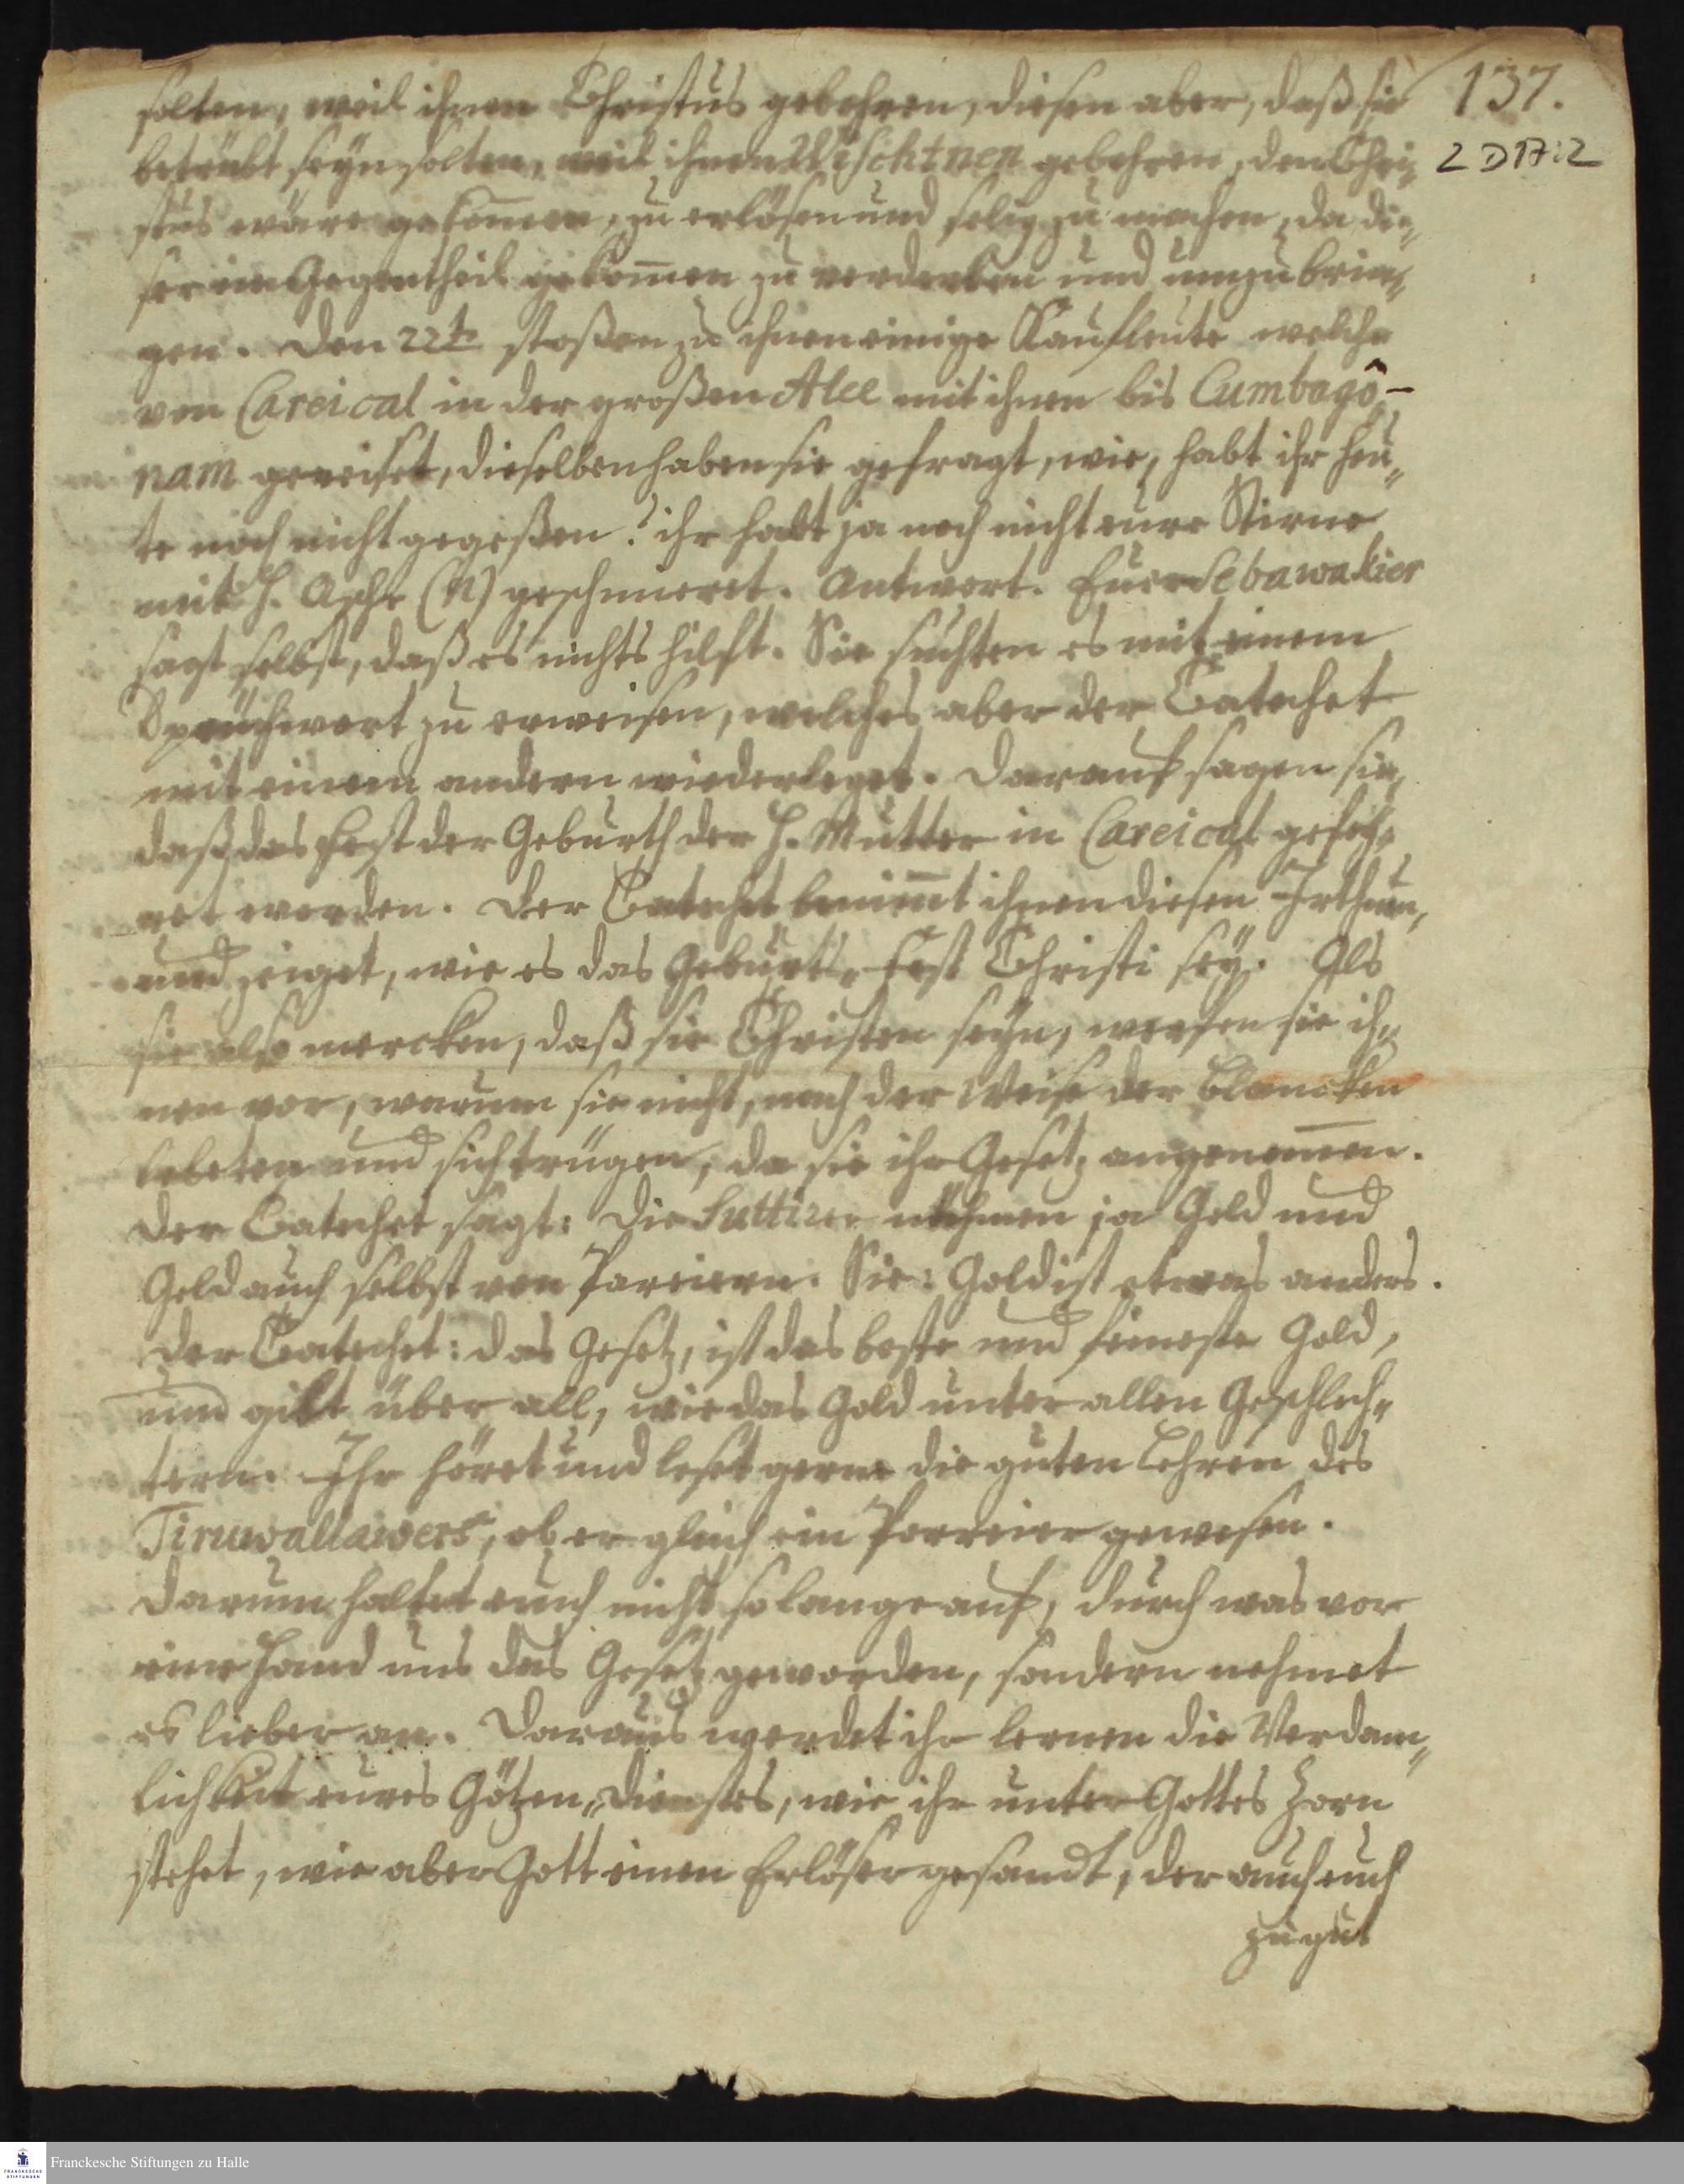 137.
2 D17:2
solten, weil ihnen Christus gebohren, diesen aber, daß sie
betrübt seyn solten, weil ihnen Wischtnen gebohren, den Chri„
stus wäre gekom̄en, zu erlösen und selig zu machen, da die„
ser im Gegentheil gekom̄en zu verderben und umzubrin„
gen. Den 22t. stoßen zu ihnen einige Kaufleute welche
von Careical in der großen Alee mit ihnen bis Cumbagô-
nam gereiset, dieselben haben sie gefragt, wie, habt ihr heu„
te noch nicht gegeßen? ihr habt ja noch nicht eure Stirne
mit H. Asche (n) geschmieret. Antwort. Euer Sebawakier
sagt selbst, daß es nichts hilft. Sie suchten es mit einem
Sprüchwort zu erweisen, welches aber der Catechet
mit einem andern wiederleget. Darauf sagen sie,
daß das Fest der Geburth der H. Mutter in Careical gefey„
ret worden. Der Catechet benim̄t ihnen diesen Irthum,
und zeiget, wie es das Geburts„Fest Christi sey. Als
sie also mercken, daß sie Christen seyn, werfen sie ih„
nen vor, warum sie nicht, nach der Weise der Blancken
lebeten und sich trügen, da sie ihr Gesetz angenom̄en.
Der Catechet sagt: Die Suttirer nähmen ja Gold und
Geld auch selbst von Pareiern. Sie: Gold ist etwas anders.
Der Catechet: Das Gesetz, ist das beste und feineste Gold,
und gilt über all, wie das Gold unter allen Geschlech„
tern. Ihr höret und leset gerne die guten Lehren des
Tiruwallawers, ob er gleich ein Parreier gewesen.
Darum haltet euch nicht so lange auf, durch was vor
eine Hand uns das Gesetz geworden, sondern nehmet
es lieber an. Daraus werdet ihr lernen die Verdam„
lichkeit eures Götzen„Dienstes, wie ihr unter Gottes Zorn
stehet, wie aber Gott einen Erlöser gesandt, der auch euch
zu gut
Franckesche Stiftungen zu Halle
FRANCKESCHE
STIFTUNGEN